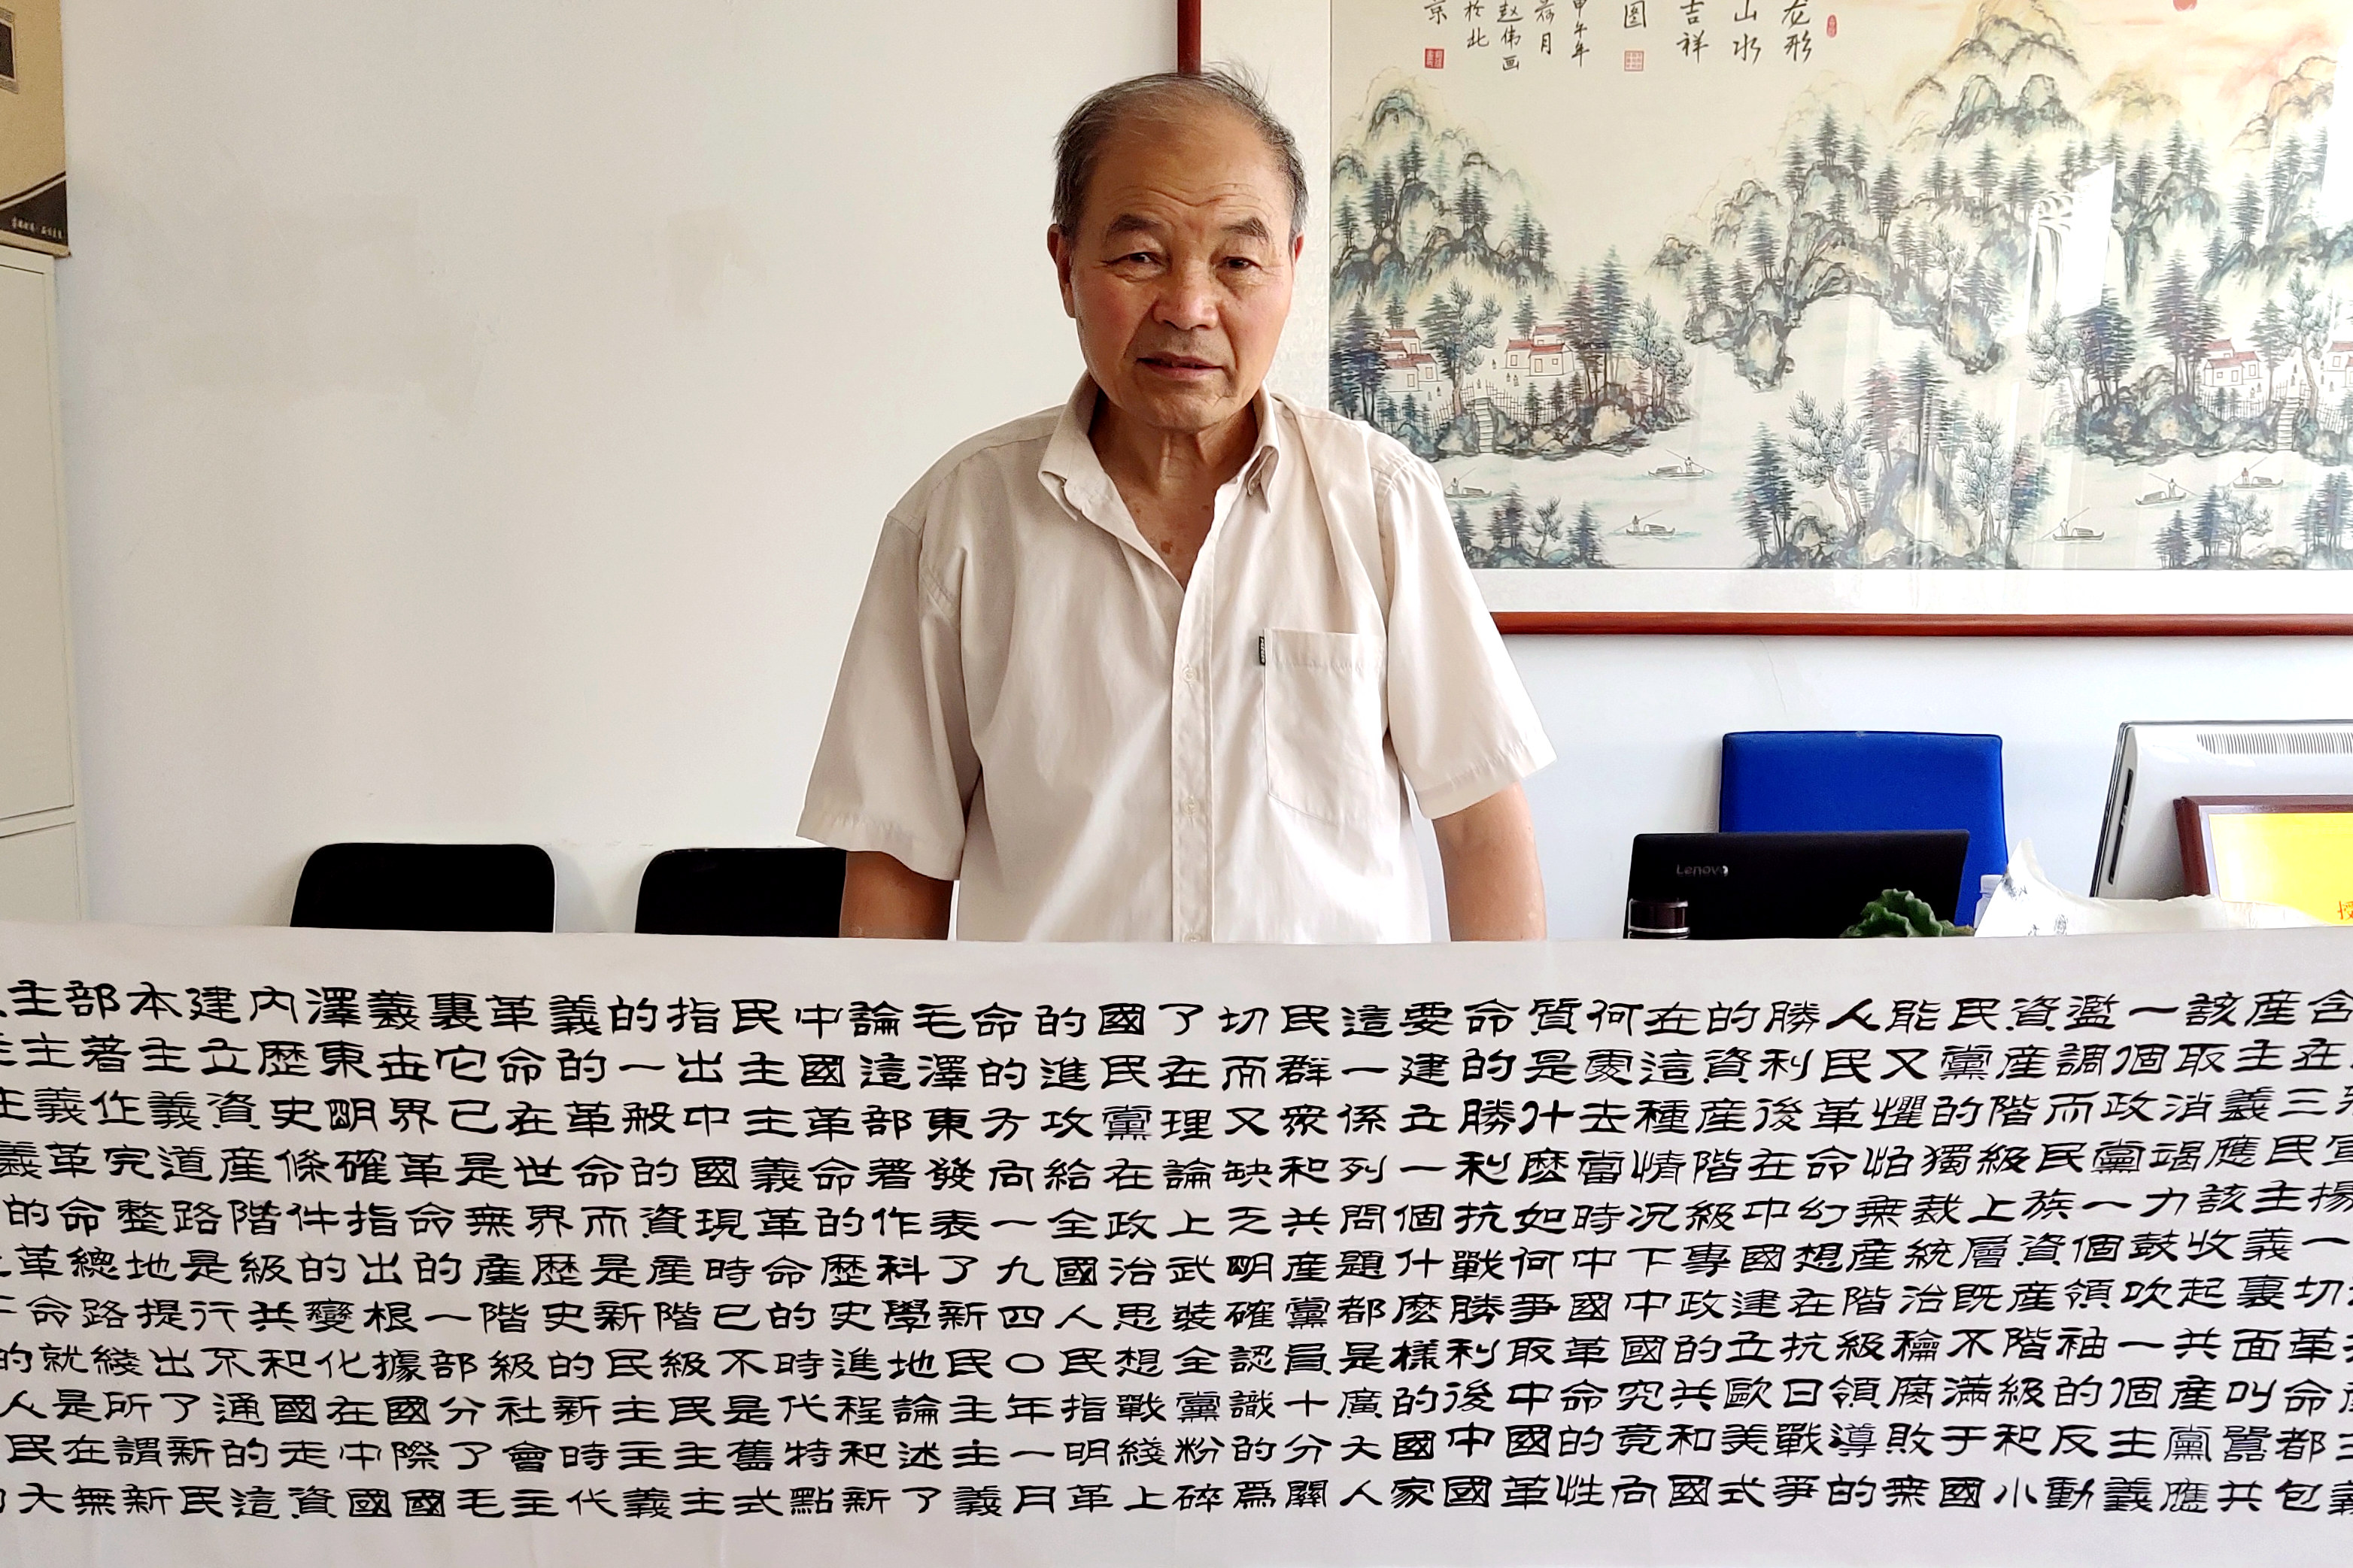 龙形
山水
吉祥
图
甲午年
荷月
赵伟画
於北
京
Lenovo
宣揚一切革命都包
含在三民主義裏面叫囂共
產主義應該收起共產黨應
該取消竭力鼓吹一個主義
一個政黨一個領袖的反動
濫調而民族資產階級和小
資產階級上層既不滿于國
民黨的獨裁統治龢腐敗無
能又懼怕無產階級領導的
人民革命幻想在抗日戰爭
勝利後在中國建立歐美式
的資產階級專政的共和國
在這種情况下中國究竟向
何處去當時中國革命的性
質是什麼如何爭取中國革
命的勝利抗戰勝利後中國
要建立一個什麼樣的國家
這一係列問題都是廣大人
民群眾和共產黨員十分關
切而又缺乏明確認識的爲
了在理論上武裝全黨粉碎
國民黨在政治思想戰綫上
的進攻給全國人民指明革
命的方向一九四〇年一月
毛澤東發表了新民主主義
論這部著作科學地論述了
中國革命的歷史進程和新
民主主義革命的時代特點
指出中國現時已不是舊式
的一般的資產階級民主主
義的革命而是新民主主義
革命在世界歷史的新時代
裏它已是無產階級社會主
義世界革命的一部分了毛
澤東明確指出根據國際國
內歷史條件的變化在中國
建立資產階級共和國走資
本主義道路是行不通的這
部著作完整地提出了新民
主主義革命總路綫所謂新
主主義的革命就是在無
的人民大